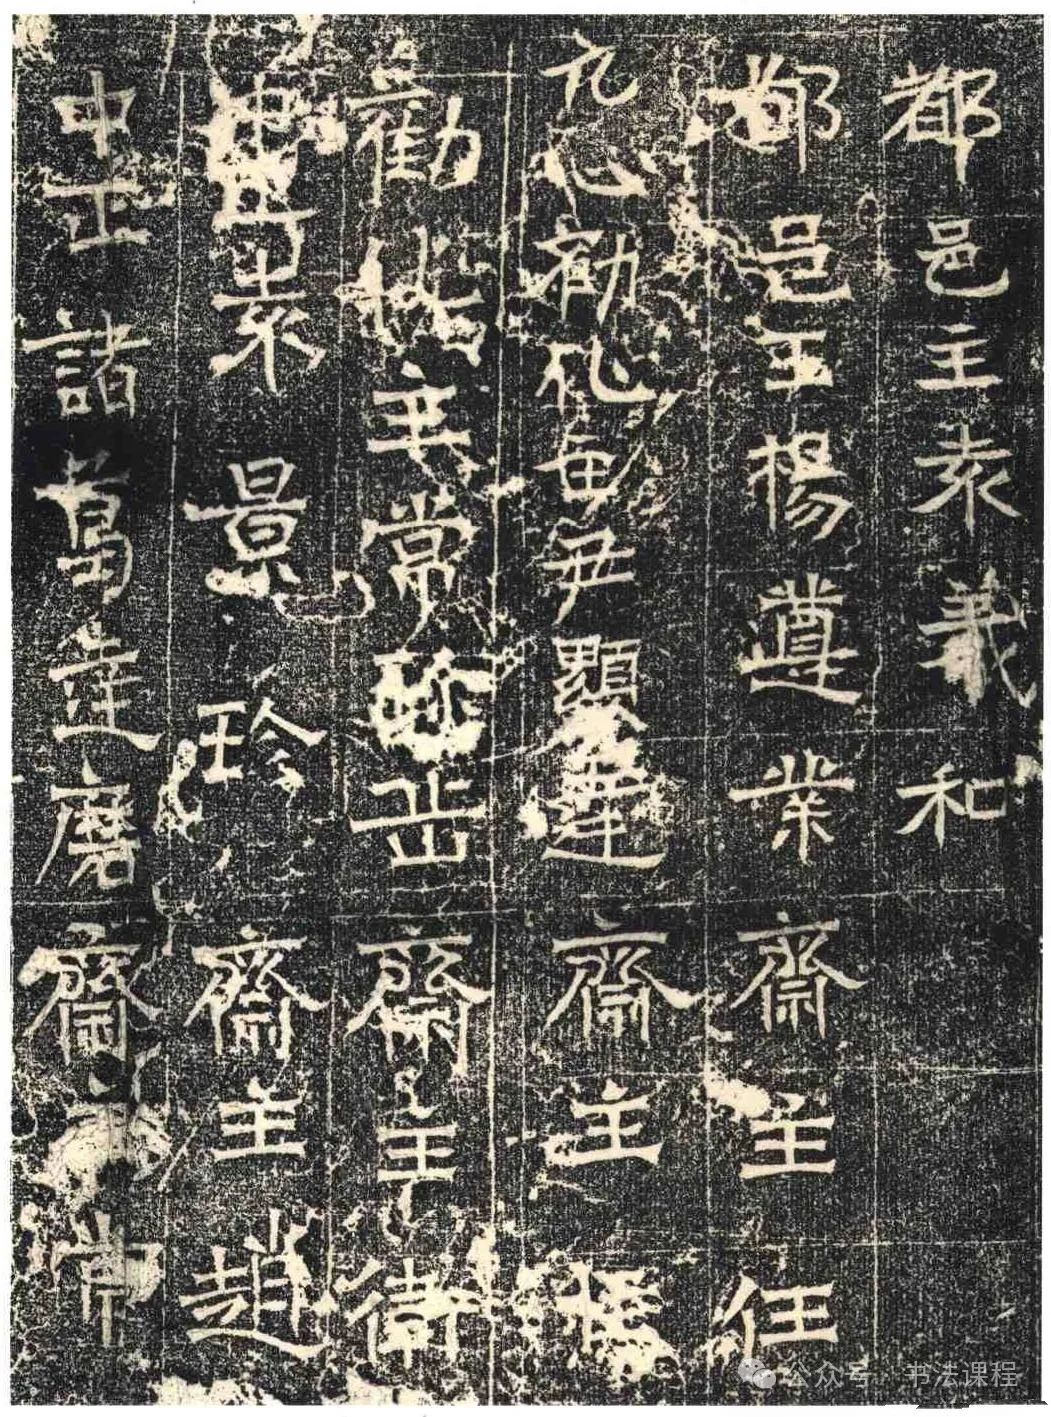 都邑主袁義和
都邑主楊遵業齋主任
元心勸化尹顯達齋主
勸化主常岳齋主衛
中正袁景玲齋主趙
中正諸葛達磨齋常
公众号 · 书法课程